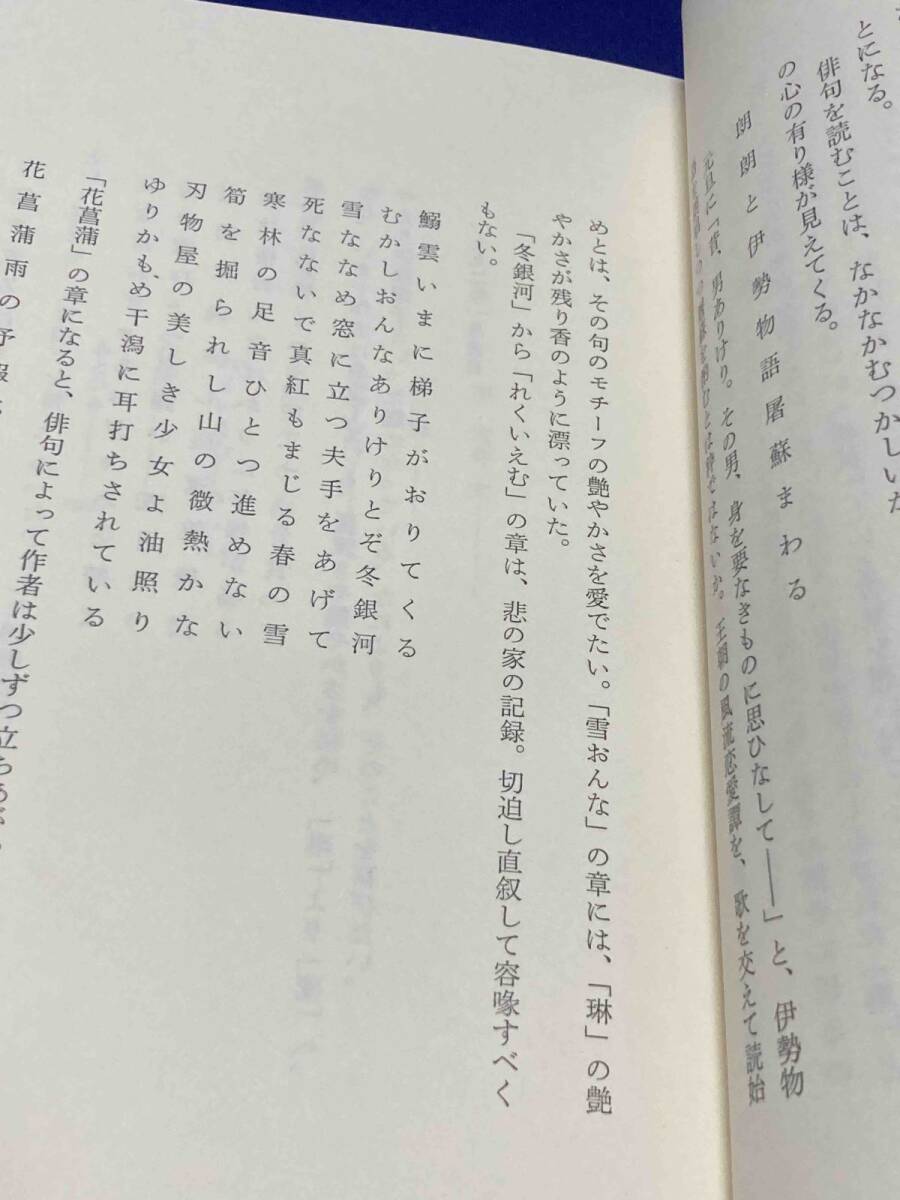 とになる。
俳句を読むことは、なかなかむつかしいが
の心の有り様が見えてくる。
朗朗と伊勢物語屠蘇まわる
元旦に「昔、男ありけり。その男、身を要なきものに思ひなして――」と、伊勢物
とは粋ではないか。王朝の風流恋愛譚を、歌を交えて読始
めとは、その句のモチーフの艶やかさを愛でたい。「雪おんな」の章には、「琳」の艶
やかさが残り香のように漂っていた。
「冬銀河」から「れくいえむ」の章は、悲の家の記録。切迫し直叙して容喙すべく
もない。
鰯雲いまに梯子がおりてくる
むかしおんなありけりとぞ冬銀河
雪ななめ窓に立つ夫手をあげて
死なないで真紅もまじる春の雪
寒林の足音ひとつ進めない
筍を掘られし山の微熱かな
刃物屋の美しき少女よ油照り
ゆりかもめ干潟に耳打ちされている
「花菖蒲」の章になると、俳句によって作者は少しずつ立ちあが
花菖蒲雨の予報